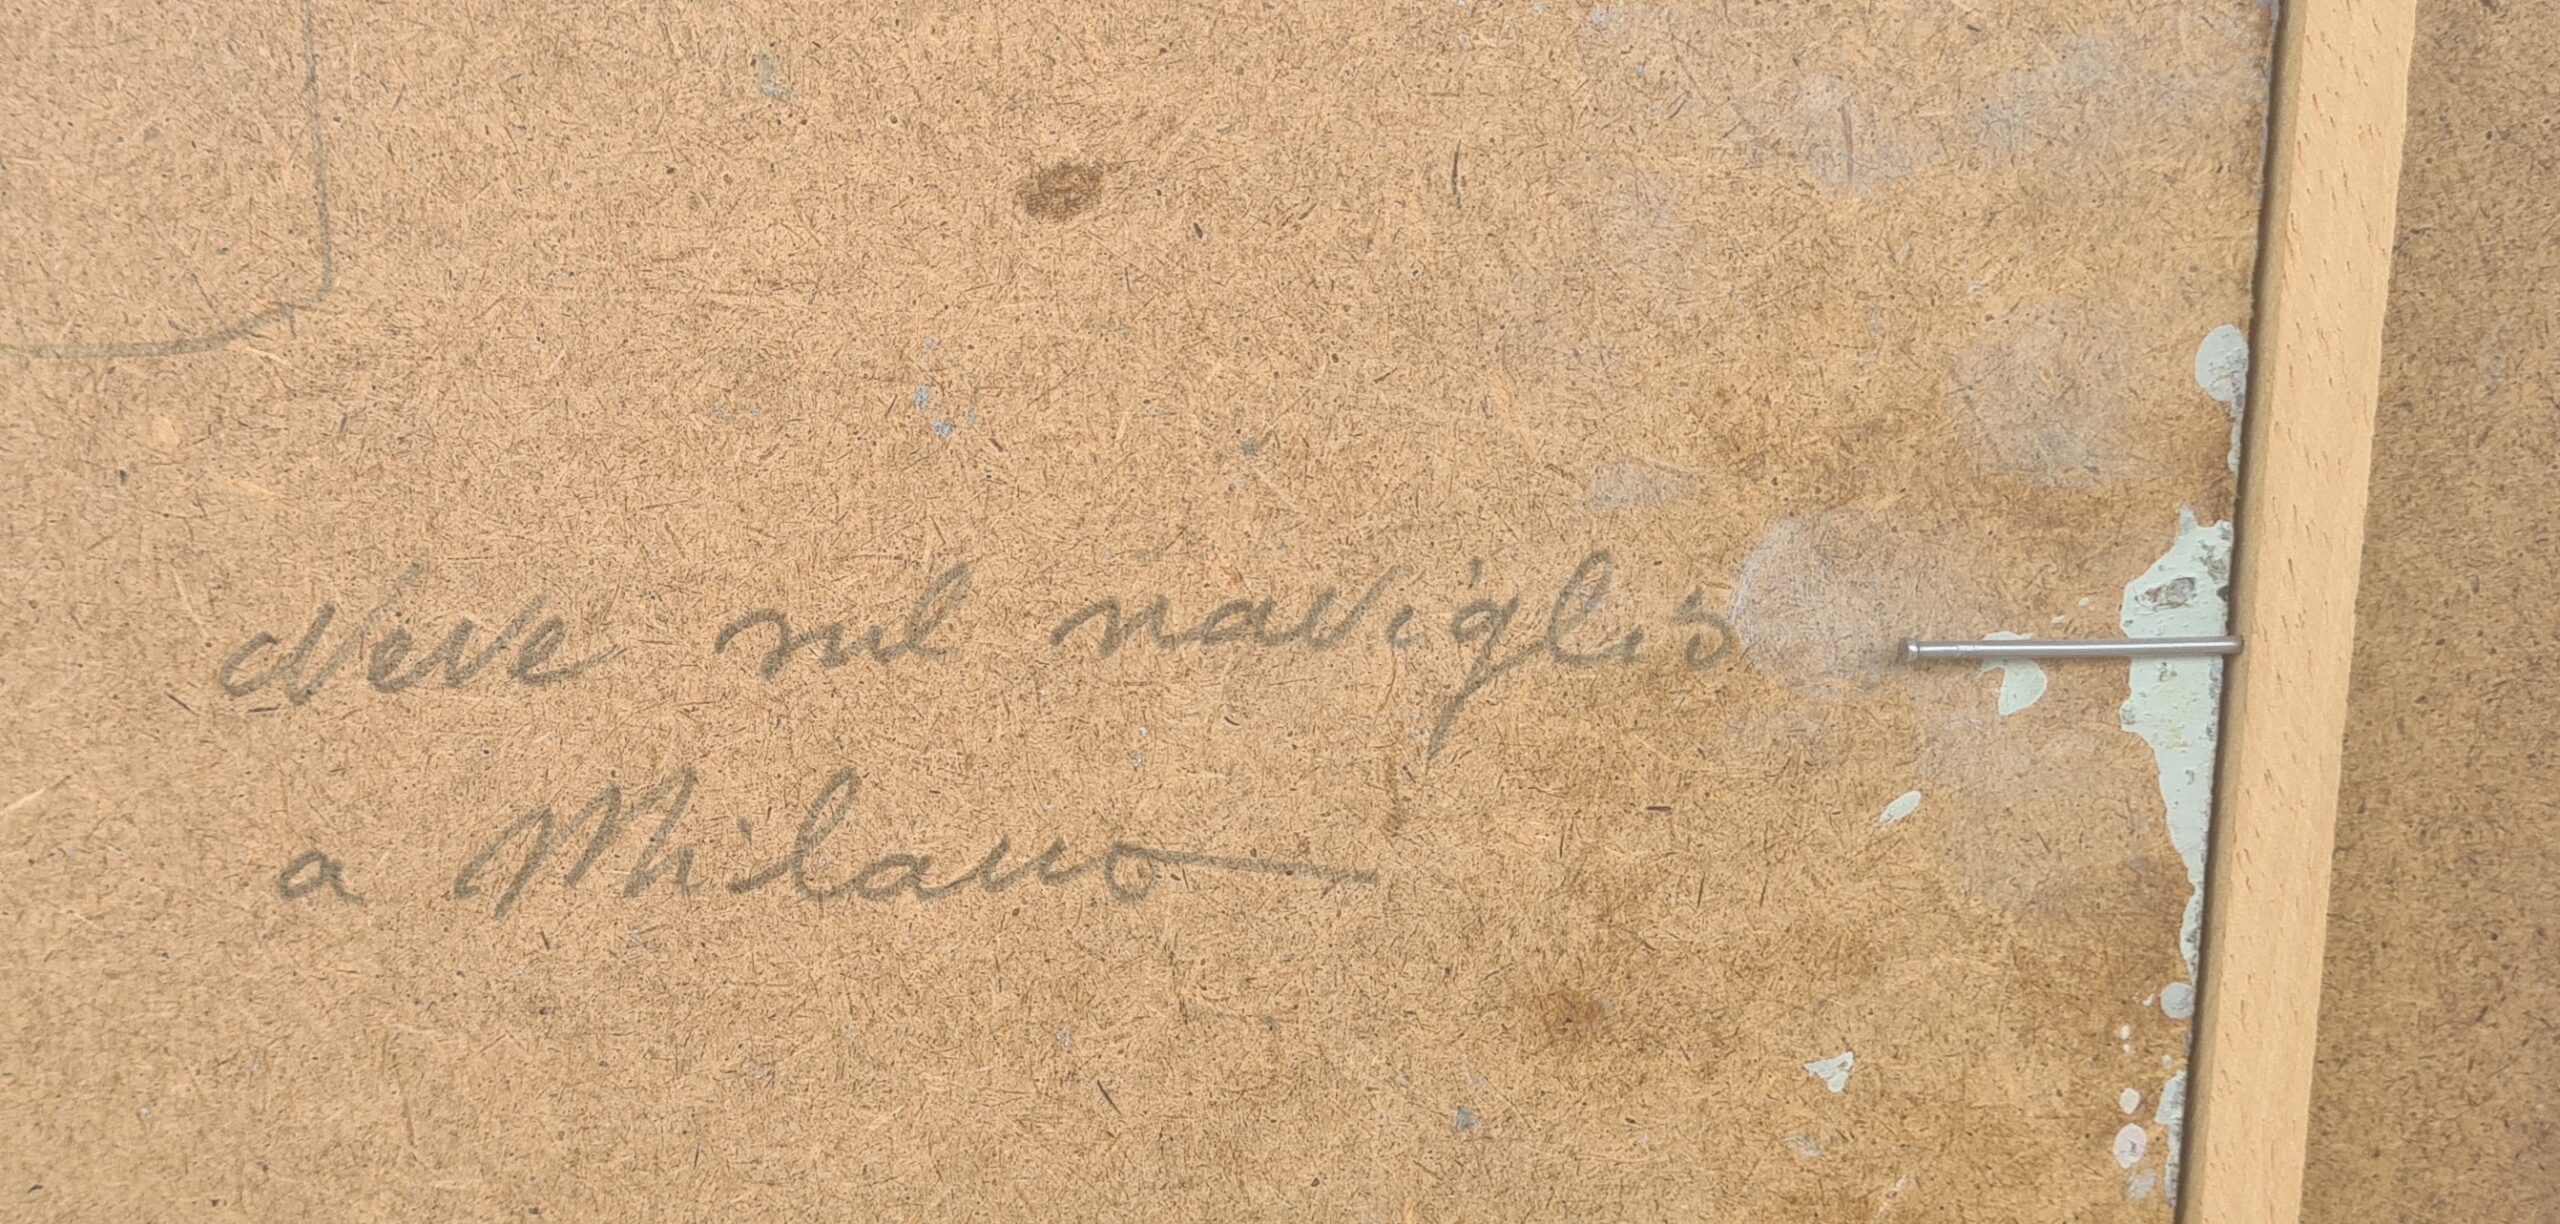 Neve sul naviglio
a Milano